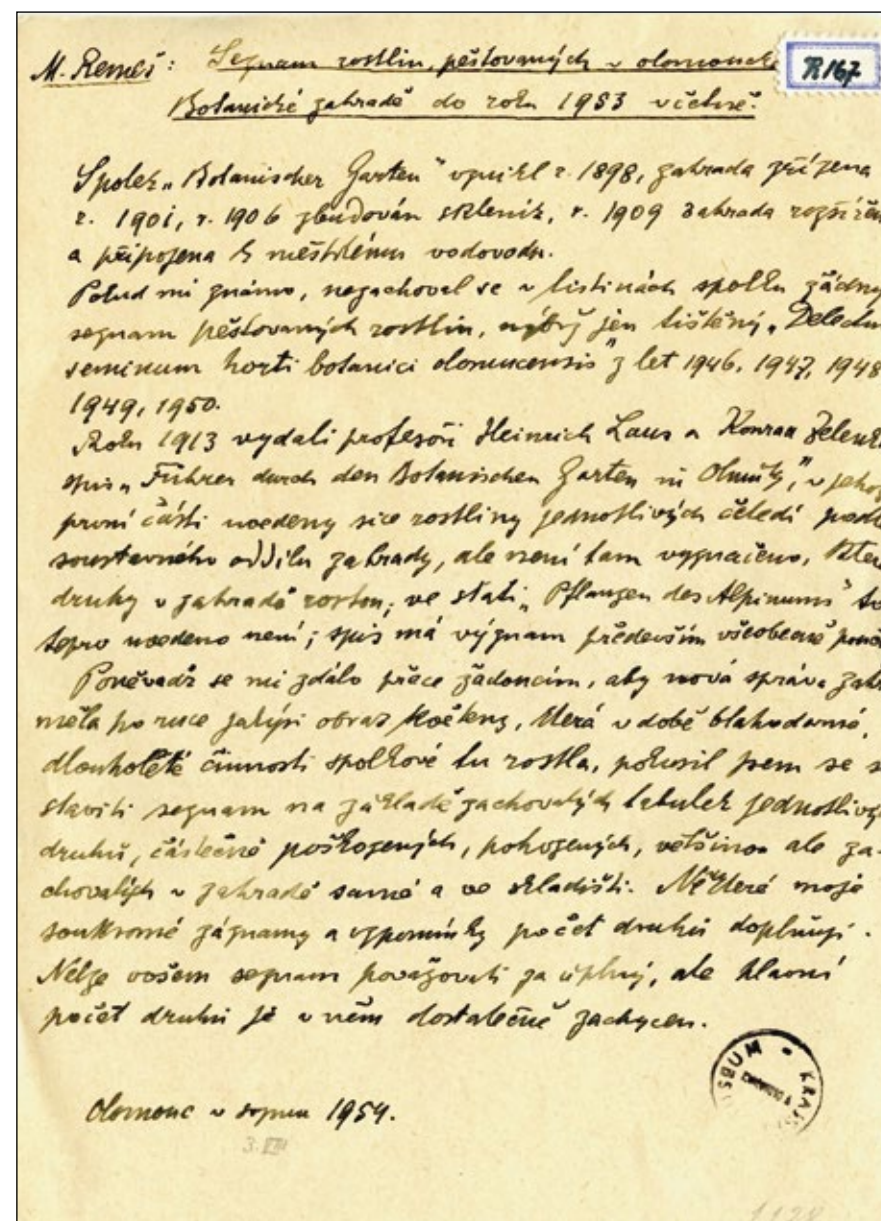 M. Remeš: Seznam rostlin, pěstovaných v olomouck
R167
Botanické zahradě do roku 1953 včetně.
Spolek „Botanischer Garten" vznikl r. 1898, zahrada zřízena
r. 1901, r. 1906 zbudován skleník, r. 1909 zahrada rozšířen
a připojena k městskému vodovodu.
Pokud mi známo, nezachoval se v listinách spolku žádný
seznam pěstovaných rostlin, nýbrž jen tištěný „Delectus
seminum horti botanici olomucensis" z let 1946, 1947, 1948
1949, 1950.
Roku 1913 vydali profesoři Heinrich Laus a Konrad Zelenk
spis „Führer durch den Botanischen Garten in Olmütz", v jehož
první části uvedeny sice rostliny jednotlivých čeledí podl
soustavného oddílu zahrady, ale není tam vyznačeno, kter
druhy v zahradě rostou; ve stati „Pflanzen des Alpinums" to
tepro uvedeno není; spis má význam především všeobecně
Poněvadž se mi zdálo přece žádoucím, aby nová správa zahr
měla po ruce jakýsi obraz květeny, která v době blahodárné,
dlouholeté činnosti spolkové tu rostla, pokusil jsem se s
staviti seznam na základě zachovalých tabulek jednotlivý
druhů, částečně poškozených, pohozených, většinou ale za-
chovalých v zahradě samé a ve skladišti. Některé moje
soukromé záznamy a vzpomínky počet druhů doplňují.
Nelze ovšem seznam považovati za úplný, ale hlavní
počet druhů je v něm dostatečně zachycen.
Olomouc v srpnu 1954.
3. VIII